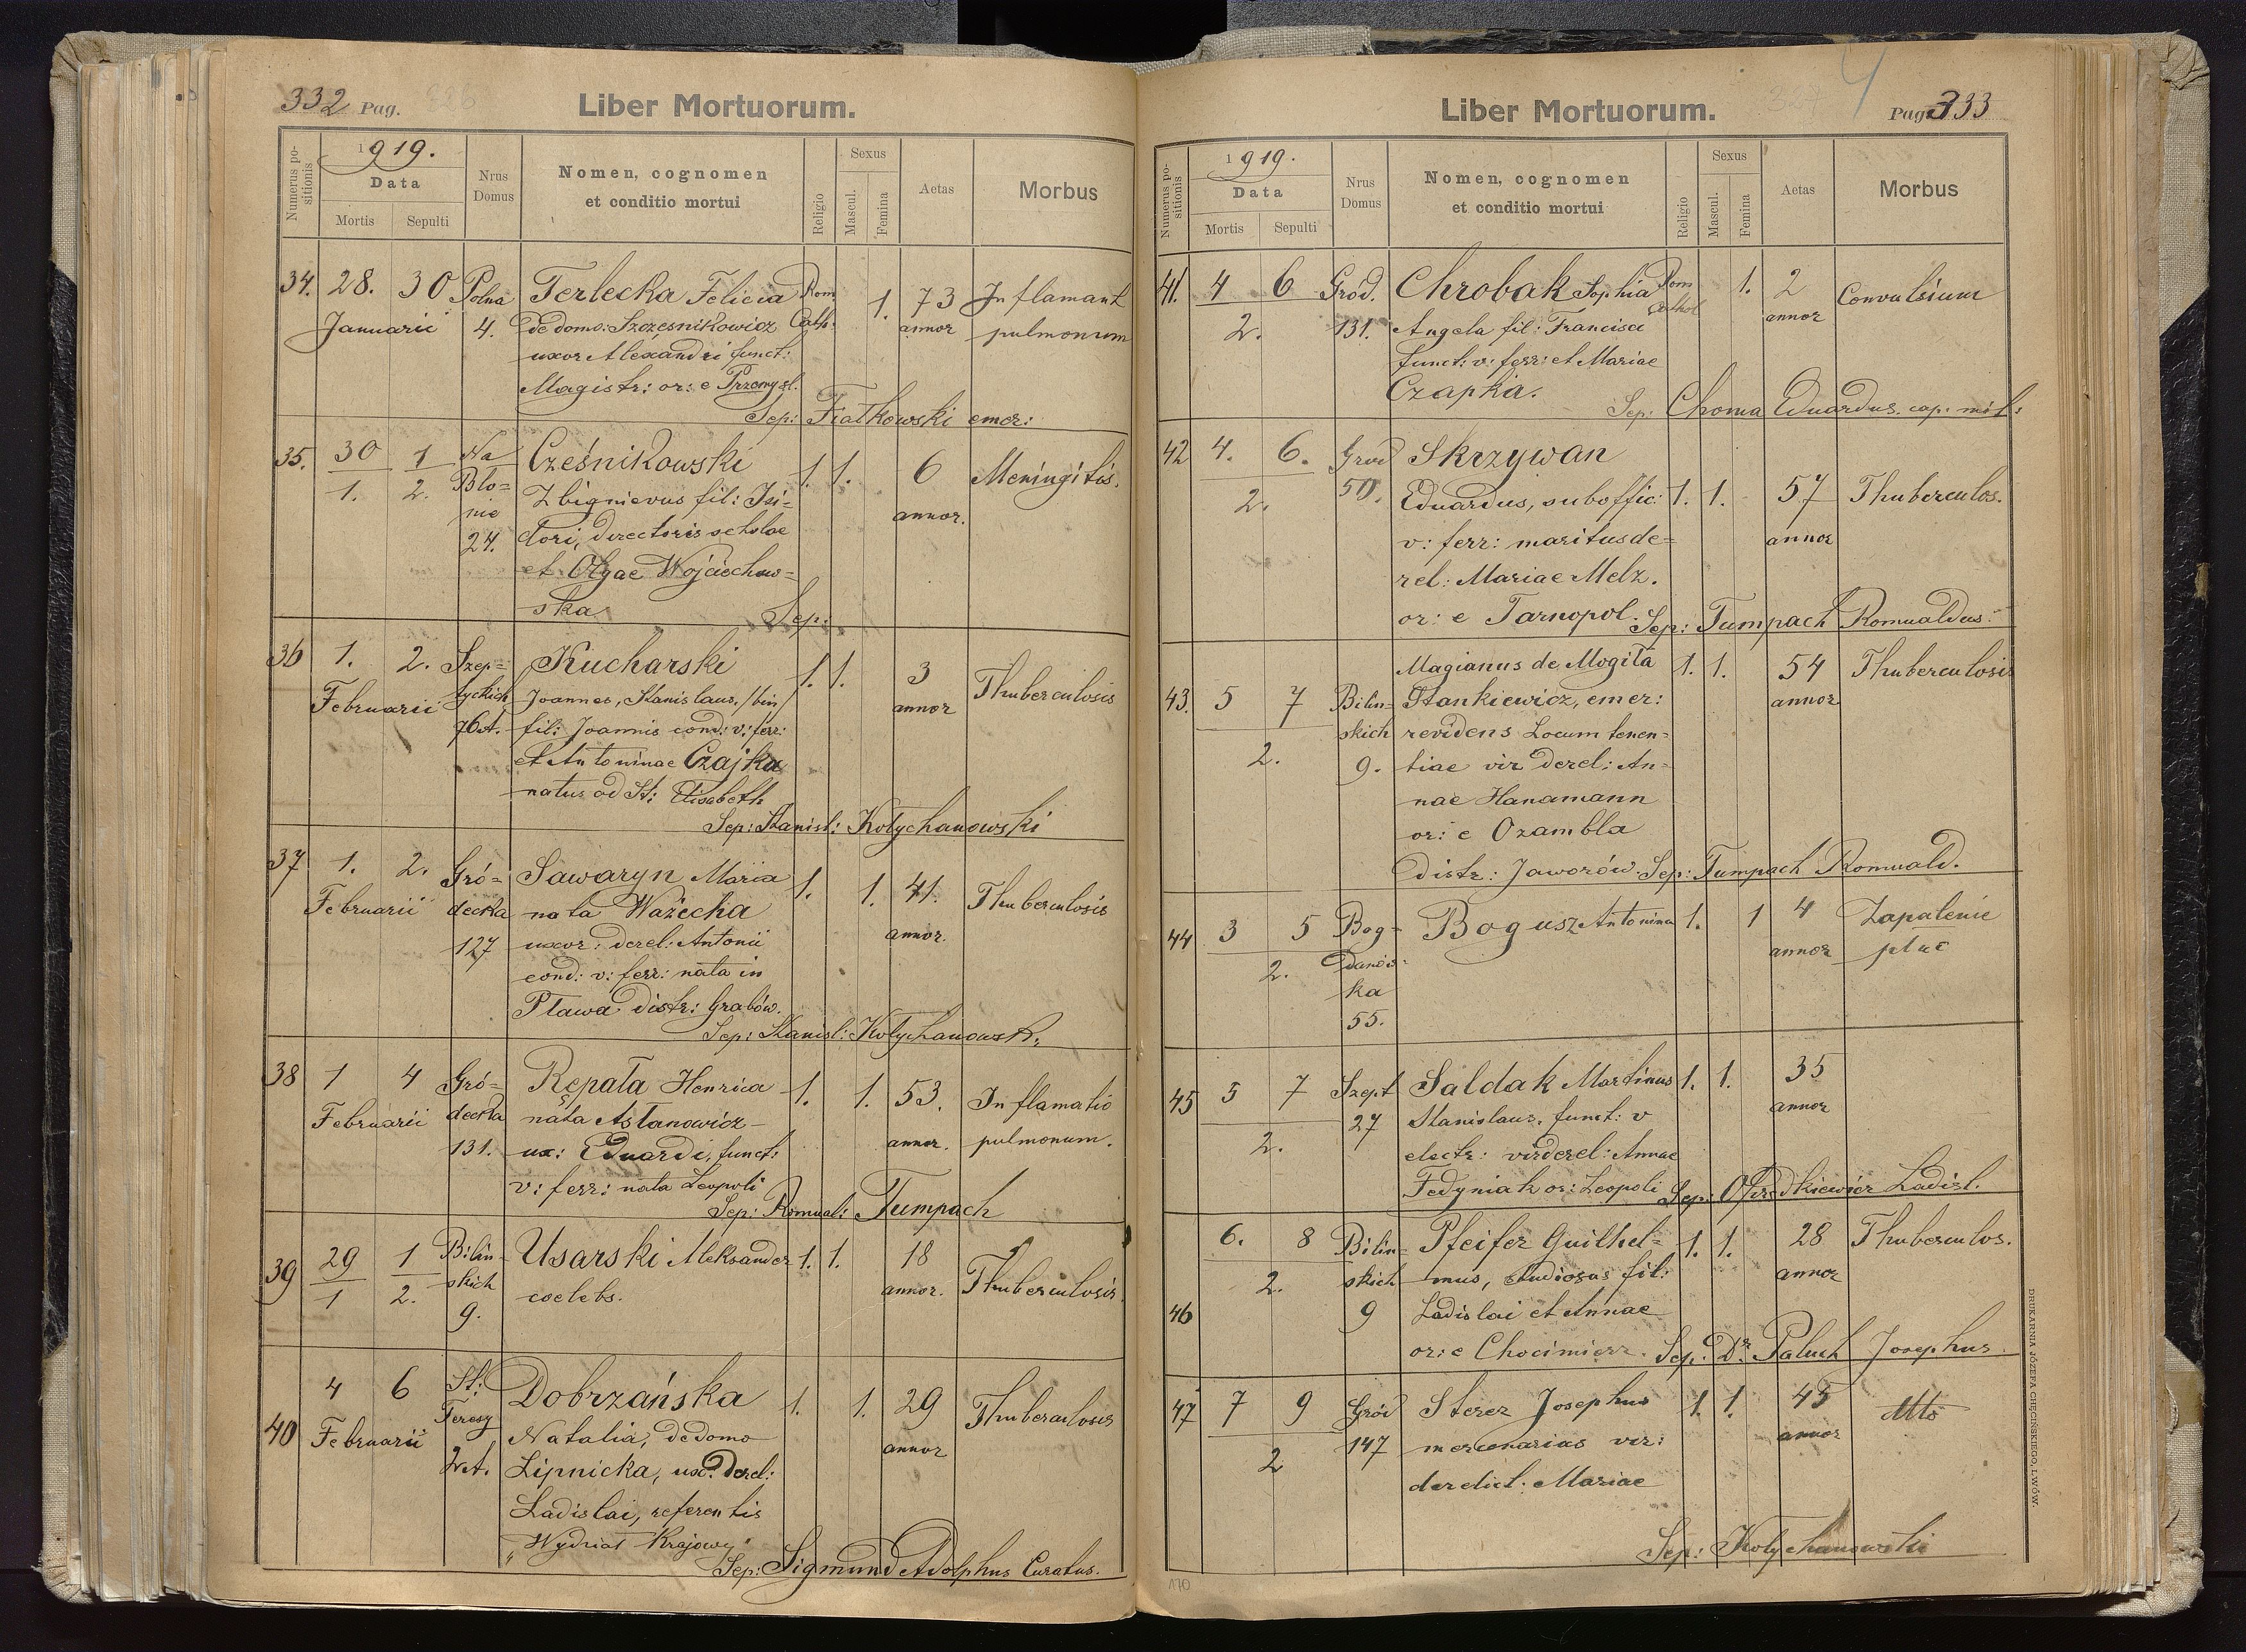 332 Pag.
Liber Mortuorum.
Numerus positionis
1919.
Data
Mortis
Sepulti
Nrus Domus
Nomen, cognomen
et conditio mortui
Religio
Sexus
Mascul.
Femina
Aetas
Morbus
34. 28. 30 Polna Terlecka Felicia Rom 1. 73 Inflamant
Januarii 4. de domo: Szczesnikowicz Cath. annor pulmonum
uxor Alexandri funct:
Magistr: or: e Przemysl.
Sep: Fiałkowski emer:
35. 30 1 Na Cześnikowski 1. 1. 6 Meningitis.
1. 2. Blo= Zbignievus fil: Isi= annor.
nie dori, directoris scholae
24. et Olgae Wojciechow=
ska Sep:
36 1. 2. Szep= Kucharski 1. 1. 3 Thuberculosis
Februarii tyckich Joannes, Stanislaus, /bin/ annor
76A. fil: Joannis cond: v: ferr:
et Antoninae Czajka
natus ad St: Elisabeth
Sep: Stanisl: Kolychanowski
37 1. 2. Gró= Sawaryn Maria 1. 1. 41. Thuberculosis
Februarii decka nata Ważecha annor.
127 uxor: derel: Antonii
cond: v: ferr: nata in
Pława distr: Grabów.
Sep: Stanisl: Kolychanowsk.
38 1 4 Gró= Rępała Henrica 1. 1. 53. Inflamatio
Februarii decka nata Astanowicz annor. pulmonum.
131. ux: Eduardi, funct:
v: ferr: nata Leopoli
Sep: Romual: Tumpach
39 29 1 Bilin- Usarski Aleksander 1. 1. 18 Thuberculosis.
1 2. skich coelebs. annor.
9.
40 4 6 St: Dobrzańska 1. 1. 29 Thuberculosis
Februarii Teresy Natalia, de domo annor
2.A. Lipnicka, ux: derel:
Ladislai, referentis
"Wydział Krajowy"
Sep: Sigmund Adolphus Curatus.
Liber Mortuorum.
Pag. 333
Numerus positionis
1919.
Data
Mortis
Sepulti
Nrus Domus
Nomen, cognomen
et conditio mortui
Religio
Sexus
Mascul.
Femina
Aetas
Morbus
41. 4 6 Gród. Chrobak Sophia Rom 1. 2 Convulsium
2. 131. Angela fil: Francisci Cathol annor
funct: v: ferr: et Mariae
Czapka.
Sep: Choma Eduardus. cap. mil:
42 4. 6. Grod Skrzywan
2. 50. Eduardus, suboffic: 1. 1. 57 Thuberculos.
v: ferr: maritus de= annor
rel: Mariae Melz.
or: e Tarnopol. Sep: Tumpach Romualdus.
Magianus de Mogiła 1. 1. 54 Thuberculosis
43. 5 7 Bilin= Stankiewicz, emer: annor
skich revidens Locum tenen=
2. 9. tiae vir derel: An=
nae Hanamann
or: e Ozambla
distr: Jaworów. Sep: Tumpach Romuald.
44 3 5 Bog= Bogusz Antonina 1. 1 4 Zapalenie
2. danów= annor płuc
ka
55.
45 5 7 Szept Saldak Martinus 1. 1. 35
2. 27 Stanislaus, funct: v annor
electr: vir derel: Annae
Fedyniak or: Leopoli Sep:  Ladisl.
46 6. 8 Bilin= Pfeifer Guilhel= 1. 1. 28 Thuberculos.
2. skich mus, studiosus fil: annor
9 Ladislai et Annae
or: e Chocimierz. Sep. Dr Paluch Josephus.
47 7 9 Gród Sterez Josephus 1. 1. 45
2 147 mercenarius vir: annor
derelict: Mariae
Sep: Kolychanowski
170
DRUKARNIA JÓZEFA CHĘCIŃSKIEGO, LWÓW.